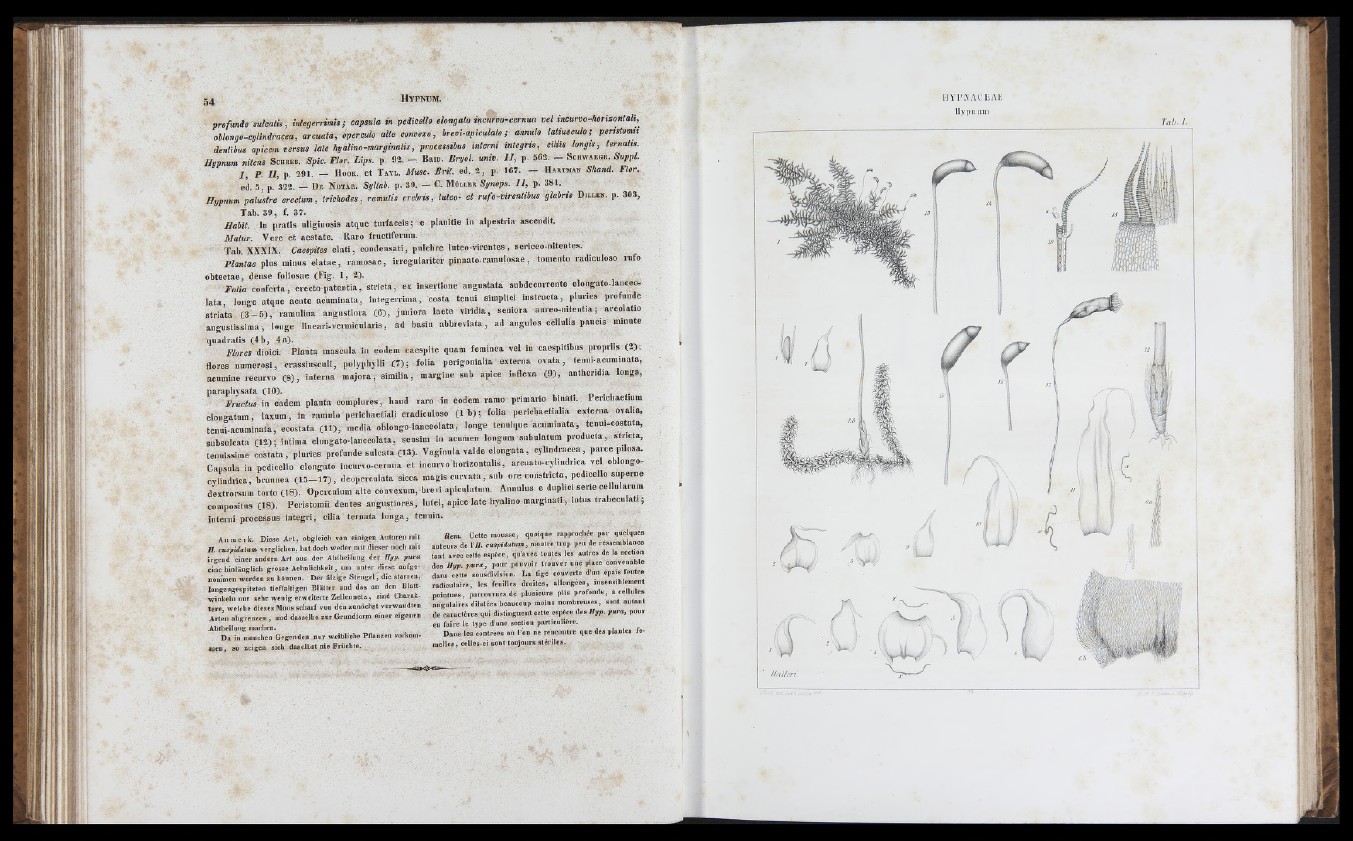 54 HYPNUM.
profunde sulcatis, integerrimis; capsula in pedicello elongato incurvo-cernua vel incurvo-horizontali,
oblongo-cylindracea, arcuata, operculo alte convexo, brevi-apiculato; annulo latiusculo; peristomii
dentibus apicem versus late hyalino-marginatis, processibus interni integris, ciliis longis, ternatis.
Hypnum nitens SCHREB. Spic. Flor. Lips. p. 92. — BRID. Bryol. univ. II, p. 562. — SCHWAEGR. Suppl.
I, P. II, p. 291. — HOOK. et TAYL. Musc. Brit. ed. 2, p. 167. — HARTMAN Skand. Flor.
ed. 5, p. 322. — DE NOTAR. Syllab. p. 39. — C. MÜLLER Synops. II, p. 381.
Hypnum palustre erectum, trichodes, ramulis crebris, luteo- et rufo-virentibus glabris DILLEN. p. 303,
Tab. 39, f. 37.
Habit. In pratis uliginosis atque turfaceis; e planitie in alpestria ascendit.
Matur. Vere et aestate. Raro fructiferum.
Tab. XXXIX. Caespites elati, condensati, pulchre luteo-virentes, sericeo-nitentes.
Plantae plus minus elatae, ramosae, irregulariter pinnato-ramulosae, tomento radiculoso rufo
obtectae, dense foliosae (Fig. 1, 2).
Folia conferta, erecto-patentia, stricta, ex insertione angustata subdecorrente elongato-lanceo-
lata, longe atque acute acuminata, integerrima, costa tenui simplici instructa, pluries profunde
striata (3—5), ramulina angustiora (6), juniora laete viridia, seniora aureo-nitentia; areolatio
angustissima, longe lineari-vermicularis, ad basin abbreviata, ad angulos cellulis paucis minute
quadratis (4 b, 4 a).
Flores dioici. Planta mascula in eodem caespite quam feminea vel in caespitibus propriis (2);
flores numerosi, crassiusculi, polyphylli (7); folia perigonialia externa ovata, tenui-acuminata,
acumine recurvo (8), interna majora, similia, margine sub apice inflexa (9), antheridia longa,
paraphysata (10).
Fructus in eadem planta complures, haud raro in eodem ramo primario binati. Perichaetium
elongatum, laxum, in ramulo perichaetiali eradiculoso (1 b); folia perichaetialia externa ovalia,
tenui-acuminata, ecostata (11), media oblongo-lanceolata, longe tenuique acuminata, tenui-costata,
subsulcata (12); intima elongato-lanceolata, sensim in acumen longum subulatum producta, stricta,
tenuissime costata, pluries profunde sulcata (13). Vaginula valde elongata, cylindracea, parce pilosa.
Capsula in pedicello elongato incurvo-cernua et incurvo horizontalis, arcuato-cylindrica vel oblongo-
cylindrica, brunnea (15—17), deoperculata sicca magis curvata, sub ore constricta, pedicello superne
dextrorsum torto (18). Operculum alte convexum, brevi apiculatum. Annulus e duplici serie cellularum
compositus (18). Peristomii dentes angustiores, lutei, apice late hyalino-marginati, intus trabeculati;
interni processus integri, cilia ternata longa, tenuia.
Anmerk. Diese Art, obgleich von einigen Autoren mit
H. cuspidatum verglichen, hat doch weder mit dieser noch mit
irgend einer andern Art aus der Abtheilung der Hyp. pura
eine hinlänglich grosse Aehnlichkeit, um unter diese aufge-
nommen werden zu können. Der filzige Stengel, die starren,
langzugespitzten tieffaltigen Blätter und das an den Blatt-
winkeln nur sehr wenig erweiterte Zellennetz, sind Charak-
tere, welche dieses Moos scharf von den zunächst verwandten
Arten abgrenzen, und dasselbe zur Grundform einer eigenen
Abtheilung machen.
Da in manchen Gegenden nur weibliche Pflanzen vorkom-
men, so zeigen sich daselbst nie Früchte.
Rem. Cette mousse, quoique rapprochée par quelques
auteurs de l'H. cuspidatum, montre trop peu de ressemblance
tant avec cette espèce, qu'avec toutes les autres de la section
des Hyp. pura, pour pouvoir trouver une place convenable
dans cette sousdivision. La tige couverte d'un épais feutre
radiculaire, les feuilles droites, allongées, insensiblement
pointues, parcourues de plusieurs plis profonds, à cellules
angulaires dilatées beaucoup moins nombreuses, sont autant
de caractères qui distinguent cette espèce des Hyp. pura, pour
en faire le type d'une section particulière.
Dans les contrées où l'on ne rencontre que des plantes fe-
melles, celles-ci sont toujours stériles.
HYPNACEAE
Hypnum
Tab. I.
Halleri